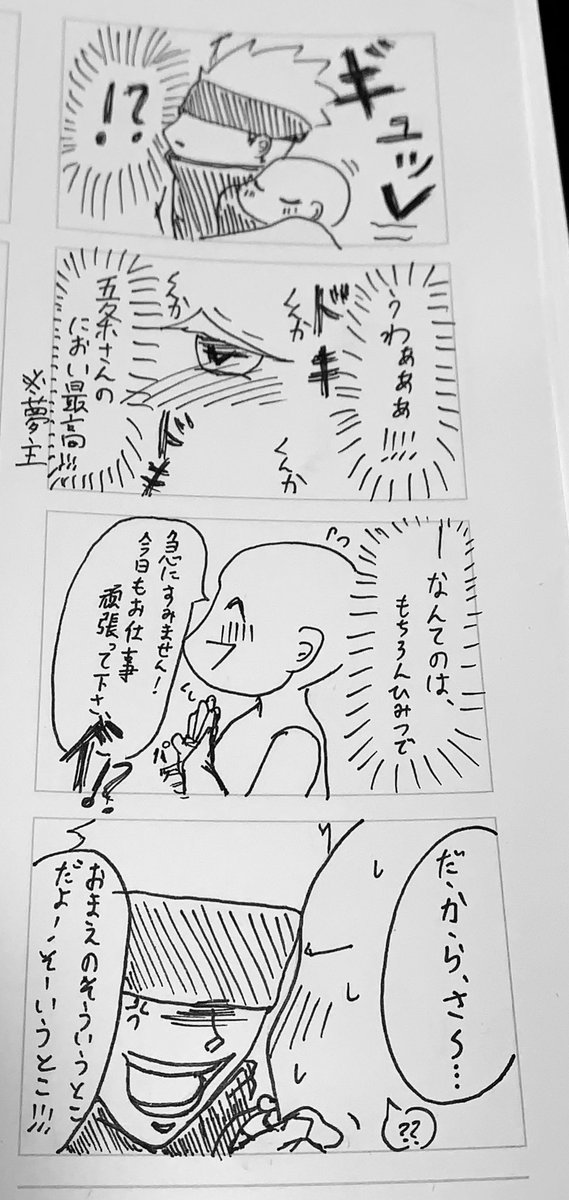 ギュッ
!?
うわぁぁぁ!!!!
ドキ
くんか
くんか
くんか
ドキ
五条さんの
におい最高!!!
※夢主
ーなんてのは、
もちろんひみつで
急にすみません!
今日もお仕事
頑張って下さい
パッ
!?
だ・か・ら、さ〜…
??
おまえのそういうとこ
だよ!そーいうとこ!!!